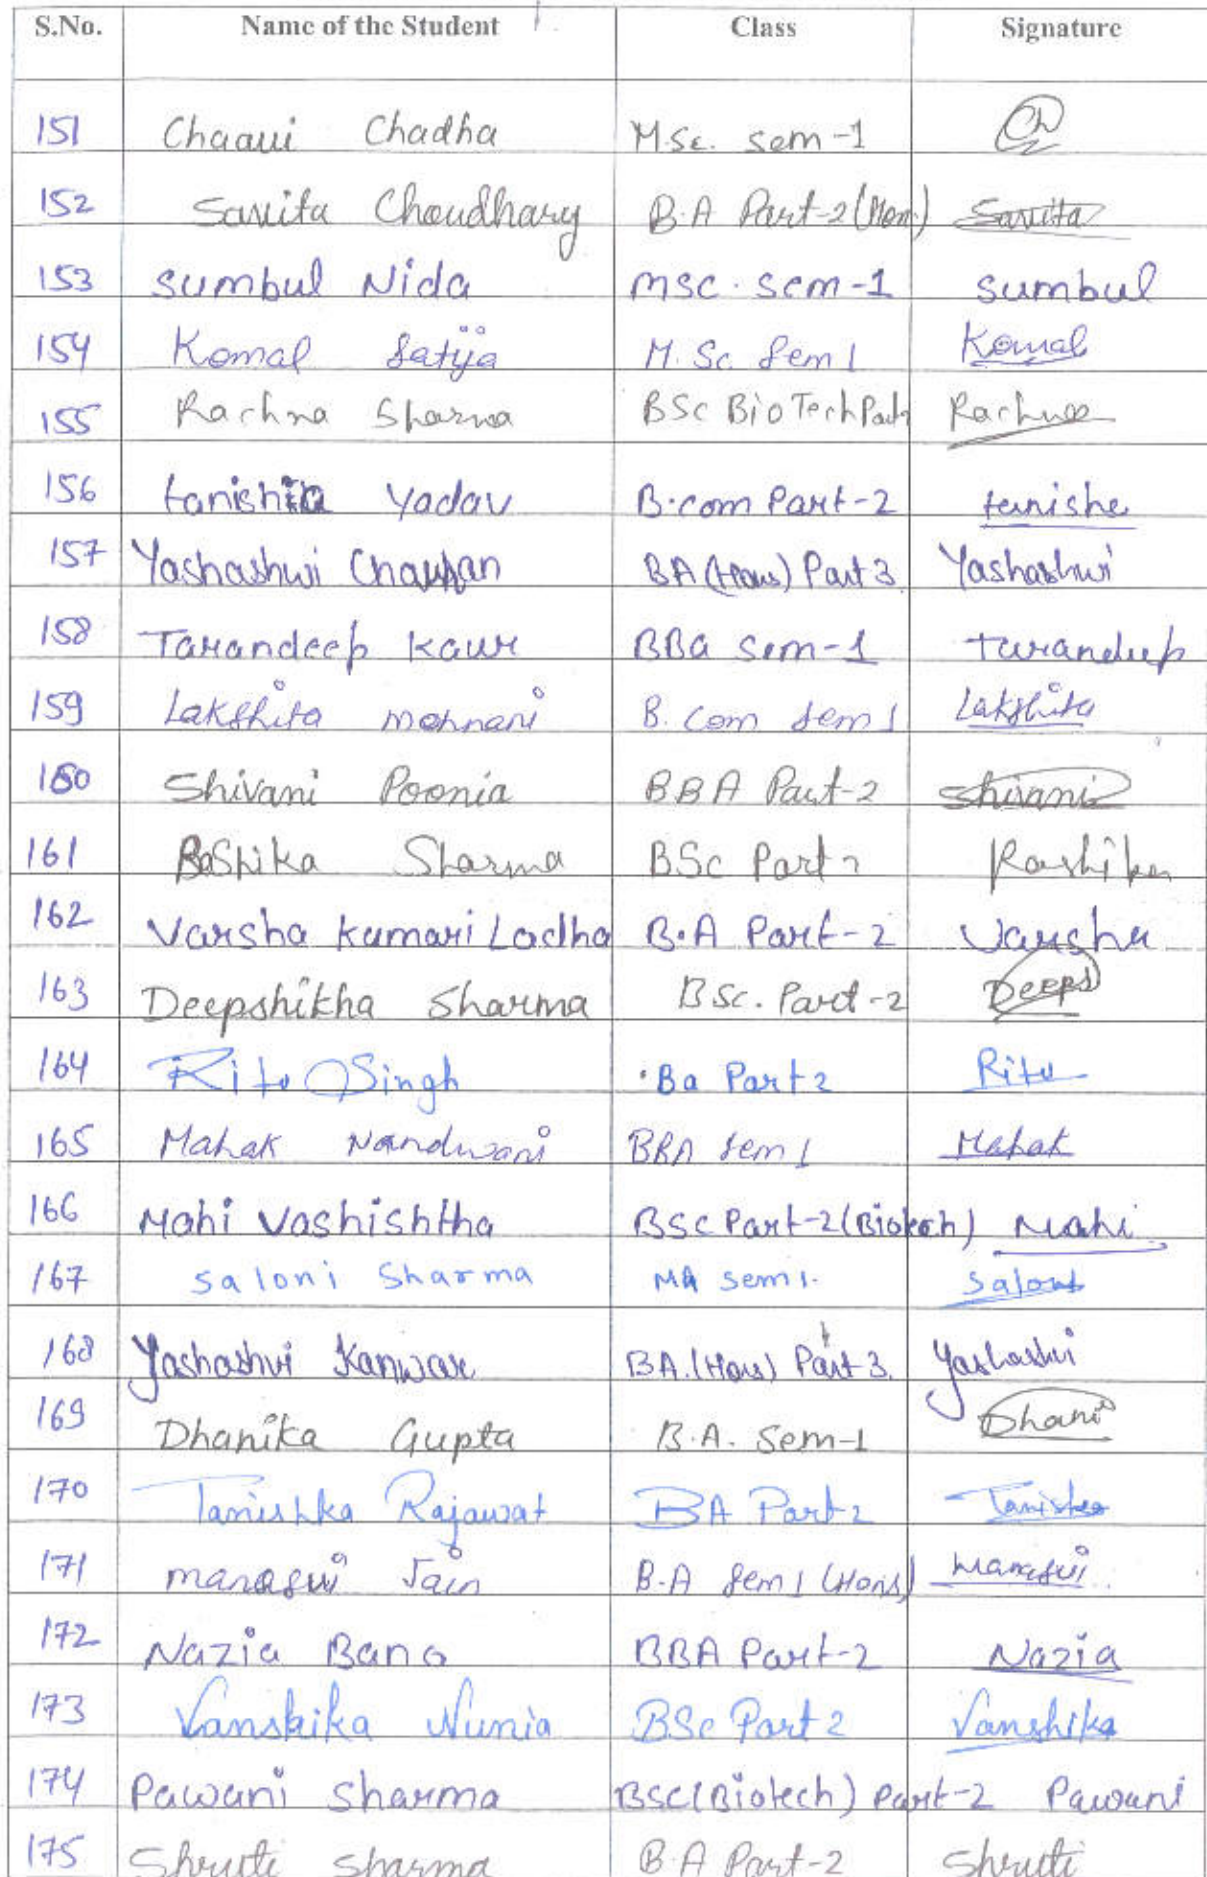 S.No. Name of the Student Class Signature
151 Chaavi Chadha M.Sc. Sem-1 Ch
152 Savita Choudhary B.A Part-2 (Hon.) Savita
153 Sumbul Nida MSC. Sem-1 Sumbul
154 Komal Satija M.Sc. Sem 1 Komal
155 Rachna Sharma BSc BioTech Rachna
156 tanisha Yadav B.com Part-2 tanisha
157 Yashashwi Chauhan BA (Hons) Part 3 Yashashwi
158 Tarandeep Kaur BBA Sem-1 Tarandeep
159 Lakshita Mohnani B. Com Sem 1 Lakshita
160 Shivani Poonia BBA Part-2 Shivani
161 Rashika Sharma BSc Part 2 Rashika
162 Varsha Kumari Lodha B.A Part-2 Varsha
163 Deepshikha Sharma B Sc. Part-2 Deeps
164 Ritu Singh Ba Part 2 Ritu
165 Mahak Nandwani BBA Sem 1 Mahak
166 Mahi Vashishtha BSC Part-2 (Biotech) Mahi
167 Saloni Sharma MA Sem 1. Saloni
168 Yashashvi Kanwar BA. (Hons) Part 3. Yashashvi
169 Dhanika Gupta B.A. Sem-1 Dhani
170 Tanishka Rajawat BA Part 2 Tanishka
171 Manasvi Jain B.A Sem 1 (Hons) Manasvi
172 Nazia Bano BBA Part-2 Nazia
173 Vanshika Nunia BSc Part 2 Vanshika
174 Pawani Sharma BSC (Biotech) Part-2 Pawani
175 Shruti Sharma B.A Part-2 Shruti